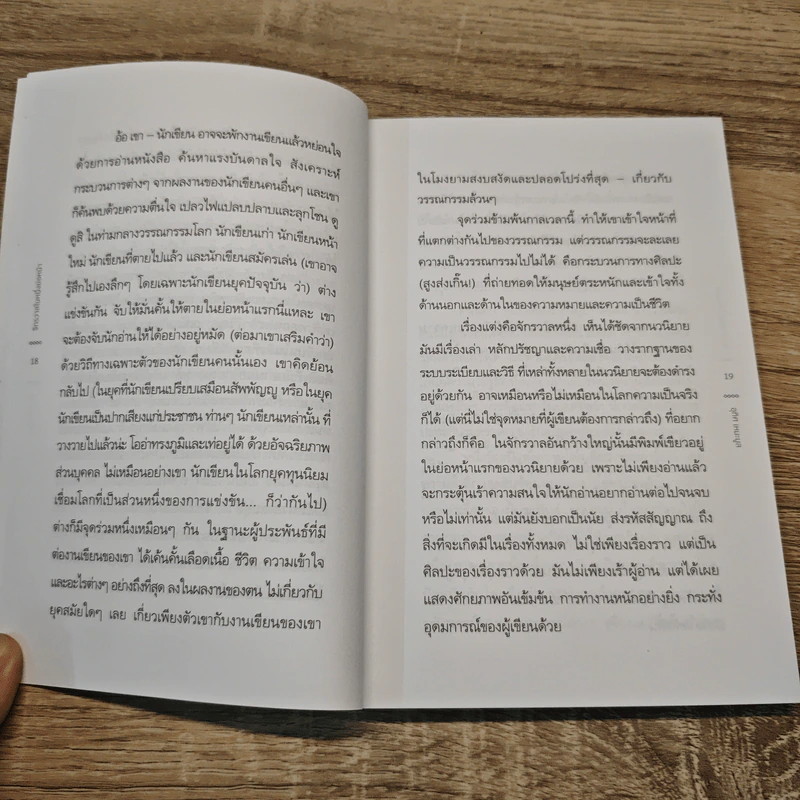 อ้อ เขา – นักเขียน อาจจะพักงานเขียนแล้วหย่อนใจ
ด้วยการอ่านหนังสือ ค้นหาแรงบันดาลใจ สังเคราะห์
กระบวนการต่างๆ จากผลงานของนักเขียนคนอื่นๆ และเขา
ก็ค้นพบด้วยความตื่นใจ เปลวไฟแปลบปลาบและลุกโชน ดู
ดูสิ ในท่ามกลางวรรณกรรมโลก นักเขียนเก่า นักเขียนหน้า
ใหม่ นักเขียนที่ตายไปแล้ว และนักเขียนสมัครเล่น (เขาอาจ
รู้สึกไปเองลึกๆ โดยเฉพาะนักเขียนยุคปัจจุบัน ว่า) ต่าง
แข่งขันกัน จับให้มั่นคั้นให้ตายในย่อหน้าแรกนี่แหละ เขา
จะต้องจับนักอ่านให้ได้อย่างอยู่หมัด (ต่อมาเขาเสริมคำว่า)
ด้วยวิถีทางเฉพาะตัวของนักเขียนคนนั้นเอง เขาคิดย้อน
กลับไป (ในยุคที่นักเขียนเปรียบเสมือนสัพพัญญู หรือในยุค
นักเขียนเป็นปากเสียงแก่ประชาชน ท่านๆ นักเขียนเหล่านั้น ที่
วางวายไปแล้วน่ะ โอ่อ่าทรงภูมิและเท่อยู่ได้ ด้วยอัจฉริยภาพ
ส่วนบุคคล ไม่เหมือนอย่างเขา นักเขียนในโลกยุคทุนนิยม
เชื่อมโลกที่เป็นส่วนหนึ่งของการแข่งขัน... ก็ว่ากันไป)
ต่างก็มีจุดร่วมหนึ่งเหมือนๆ กัน ในฐานะผู้ประพันธ์ที่มี
ต่องานเขียนของเขา ได้เค้นคั้นเลือดเนื้อ ชีวิต ความเข้าใจ
และอะไรต่างๆ อย่างถึงที่สุด ลงในผลงานของตน ไม่เกี่ยวกับ
ยุคสมัยใดๆ เลย เกี่ยวเพียงตัวเขากับงานเขียนของเขา
18
ในโมงยามสงบสงัดและปลอดโปร่งที่สุด – เกี่ยวกับ
วรรณกรรมล้วนๆ
จุดร่วมข้ามพ้นกาลเวลานี้ ทำให้เขาเข้าใจหน้าที่
ที่แตกต่างกันไปของวรรณกรรม แต่วรรณกรรมจะละเลย
ความเป็นวรรณกรรมไปไม่ได้ คือกระบวนการทางศิลปะ
(สูงส่งเกิ๊น!) ที่ถ่ายทอดให้มนุษย์ตระหนักและเข้าใจทั้ง
ด้านนอกและด้านในของความหมายและความเป็นชีวิต
เรื่องแต่งคือจักรวาลหนึ่ง เห็นได้ชัดจากนวนิยาย
มันมีเรื่องเล่า หลักปรัชญาและความเชื่อ วางรากฐานของ
ระบบระเบียบและวิธี ที่เหล่าทั้งหลายในนวนิยายจะต้องดำรง
อยู่ด้วยกัน อาจเหมือนหรือไม่เหมือนในโลกความเป็นจริง
ก็ได้ (แต่นี่ไม่ใช่จุดหมายที่ผู้เขียนต้องการกล่าวถึง) ที่อยาก
กล่าวถึงก็คือ ในจักรวาลอันกว้างใหญ่นั้นมีพิมพ์เขียวอยู่
ในย่อหน้าแรกของนวนิยายด้วย เพราะไม่เพียงอ่านแล้ว
จะกระตุ้นเร้าความสนใจให้นักอ่านอยากอ่านต่อไปจนจบ
หรือไม่เท่านั้น แต่มันยังบอกเป็นนัย ส่งรหัสสัญญาณ ถึง
สิ่งที่จะเกิดมีในเรื่องทั้งหมด ไม่ใช่เพียงเรื่องราว แต่เป็น
ศิลปะของเรื่องราวด้วย มันไม่เพียงเร้าผู้อ่าน แต่ได้เผย
แสดงศักยภาพอันเข้มข้น การทำงานหนักอย่างยิ่ง กระทั่ง
อุดมการณ์ของผู้เขียนด้วย
19